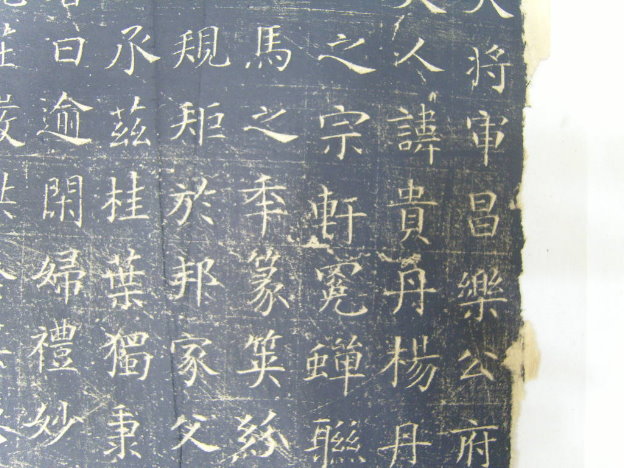 將軍昌樂公府
人諱貴丹楊丹
之宗軒冕蟬聯
馬之季篆
規矩於邦家父
承茲桂葉獨秉
日逾閑婦禮妙